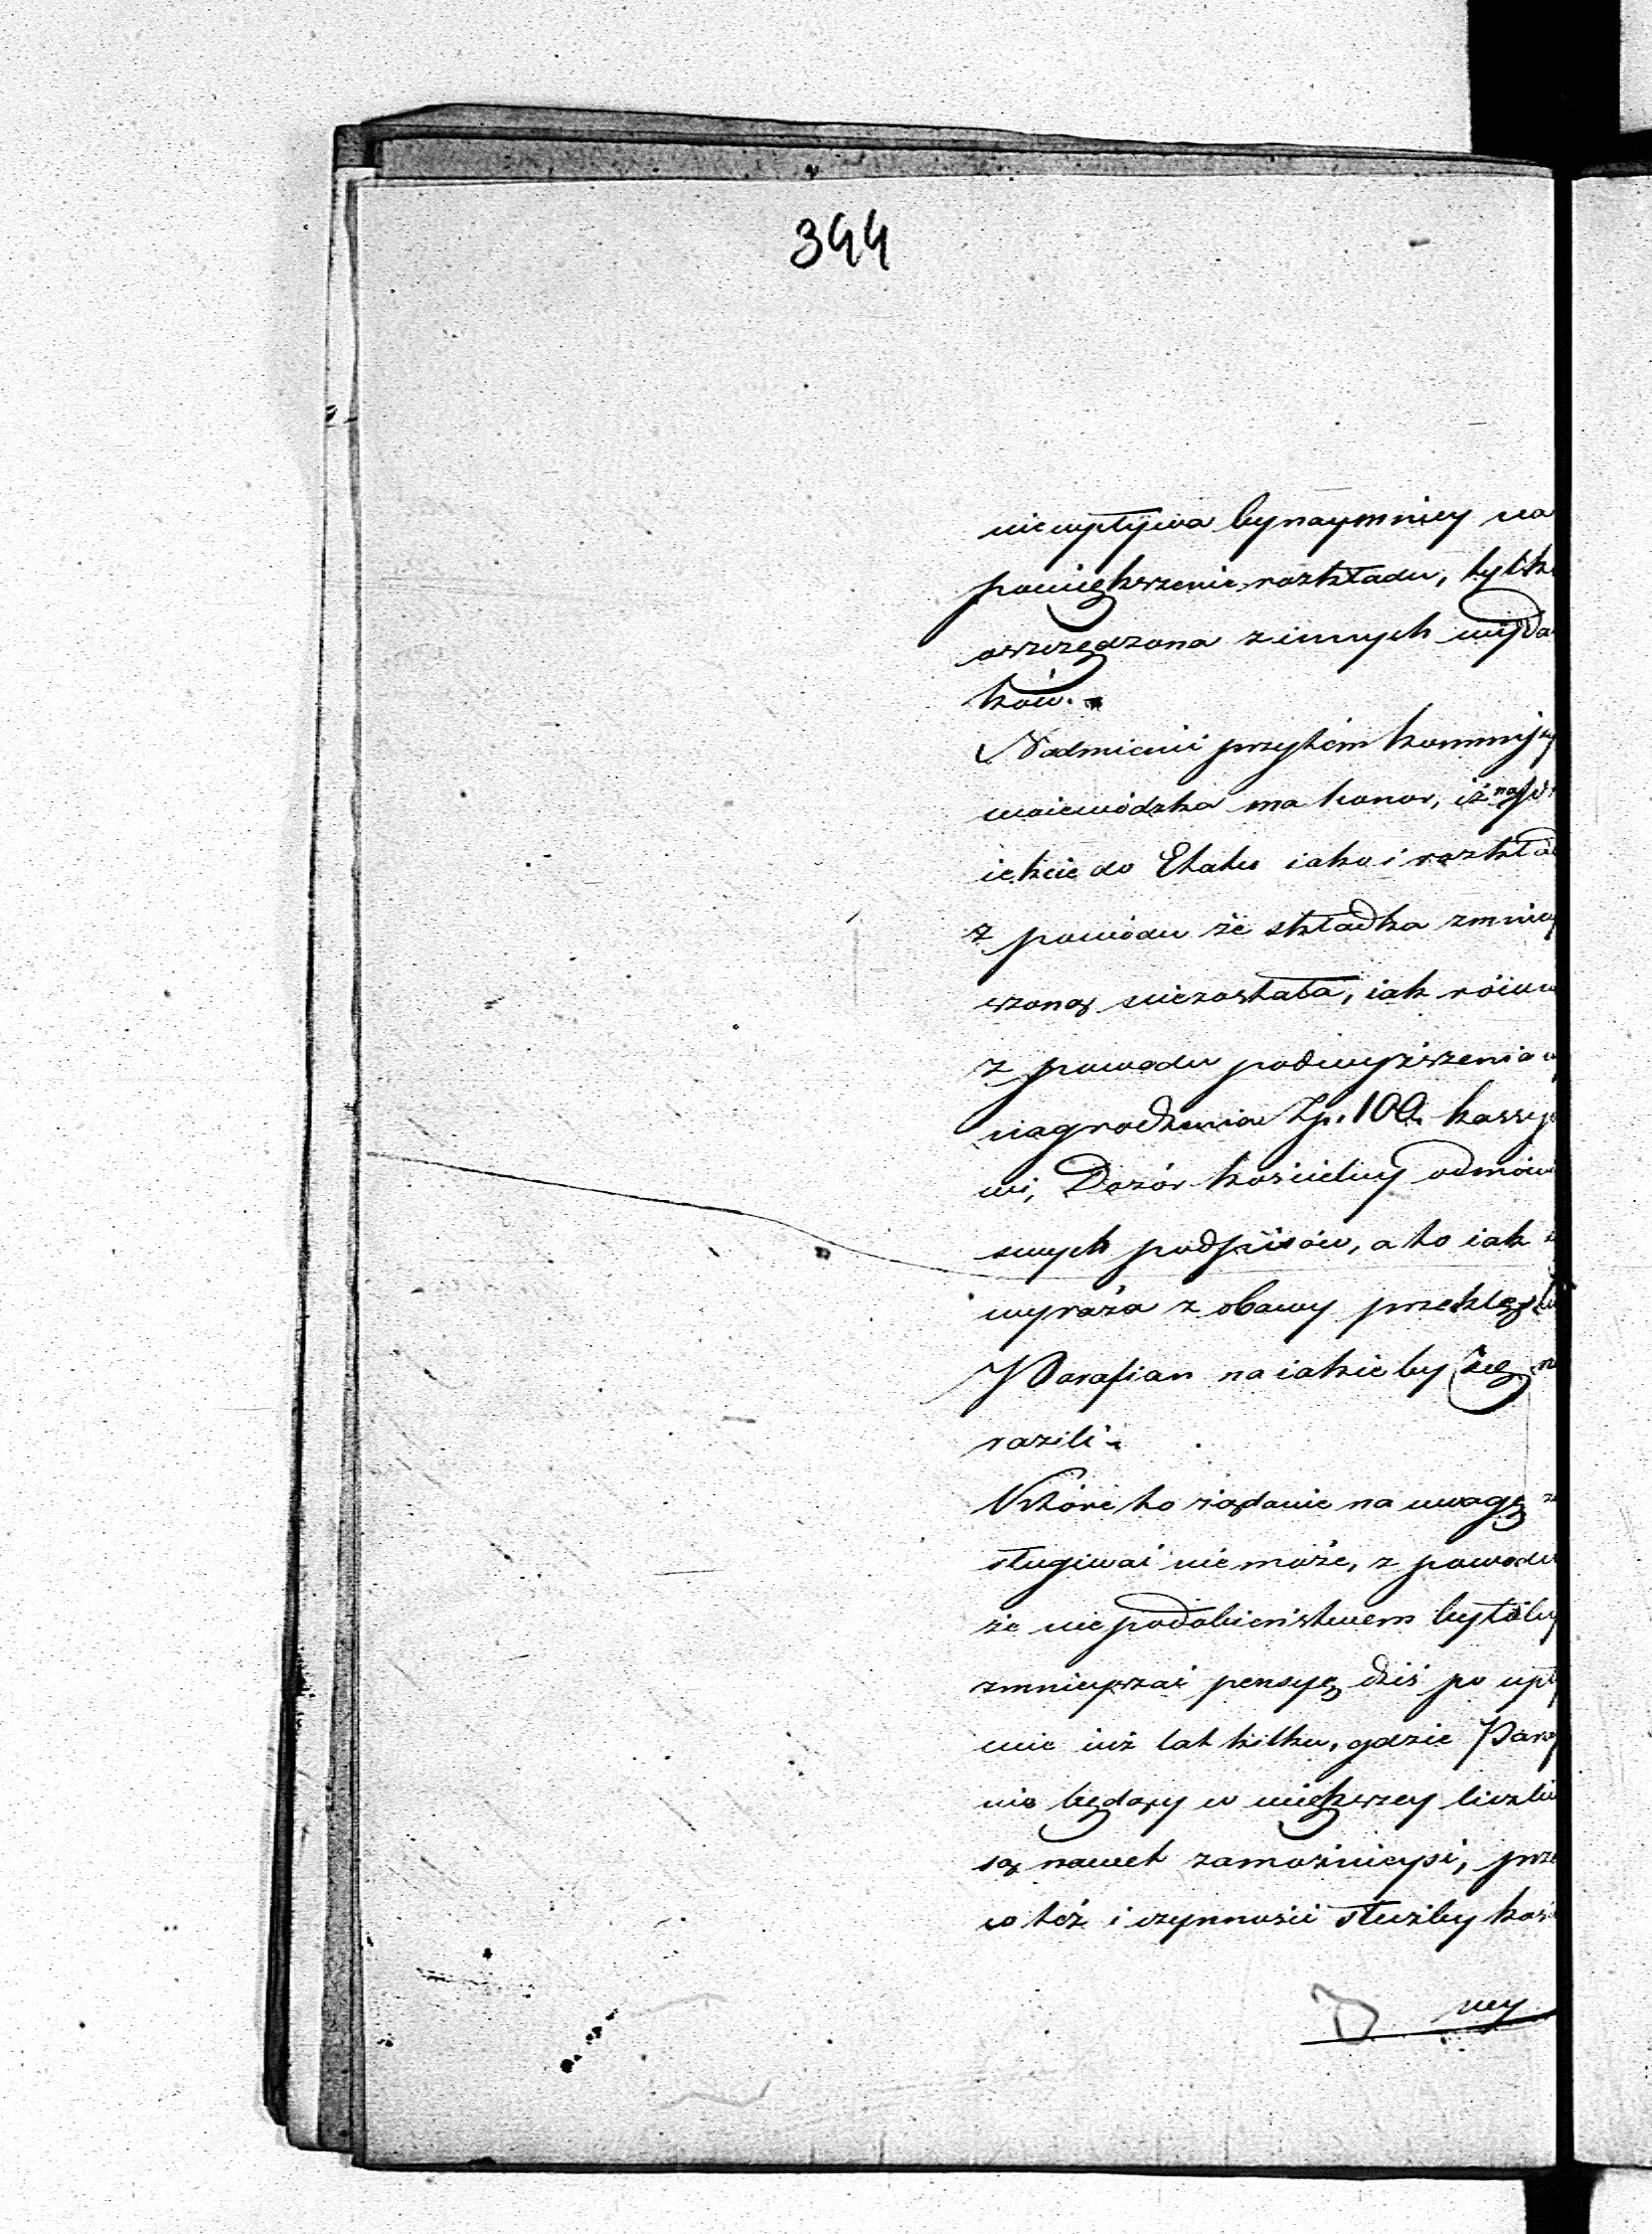 344
niewpływa bynaymniey na
powiększenie rozkładu, tylko
oszczędzona z innych wyda
ków.
Nadmienić przytém Kommissy
woiewódzka ma honor, iż na
iekcie do Etatu iako i rozkład
z powodu że składka zmniey
szoną niezostała, iak równ
z powodu podwyższenia
nagrodzenia Zp. 100. kassye
wi, Dozór kościelny odmówi
swych podpisów, a to iak
wyraża z obawy przeklęstw
Parafian na iakie by się na
razili.
Które to żądanie na uwagę za
sługiwać nie może, z powodu
że niepodobieństwem byłoby
zmnieyszać pensyę dziś po upły
nie iuż lat kilku, gdzie Paraf
nie będący w większey liczbie
są nawet zamożnieysi, prze
co też i czynności służby kośc
ney